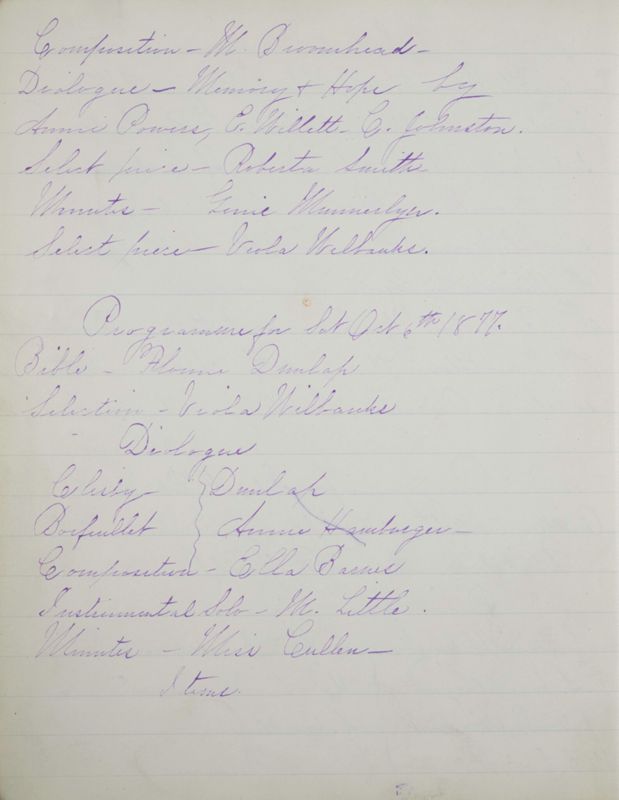 Composition - M. Broomhead -
Dialogue - Memory & Hope by
Annie Powers, E. Willett - C. Johnston.
Select piece - Roberta Smith
Minutes - Genie Munnerlyn.
Select piece - Viola Wilbanks.
Programme for Sat Oct 6th 1877.
Bible - Florine Dunlap
Selection - Viola Wilbanks
Dialogue
Clisby } Dunlap
Annie Hamburger -
Composition - Ella Barnes
Instrumental Solo - M. Little.
Minutes - Miss Cullen -
Items.